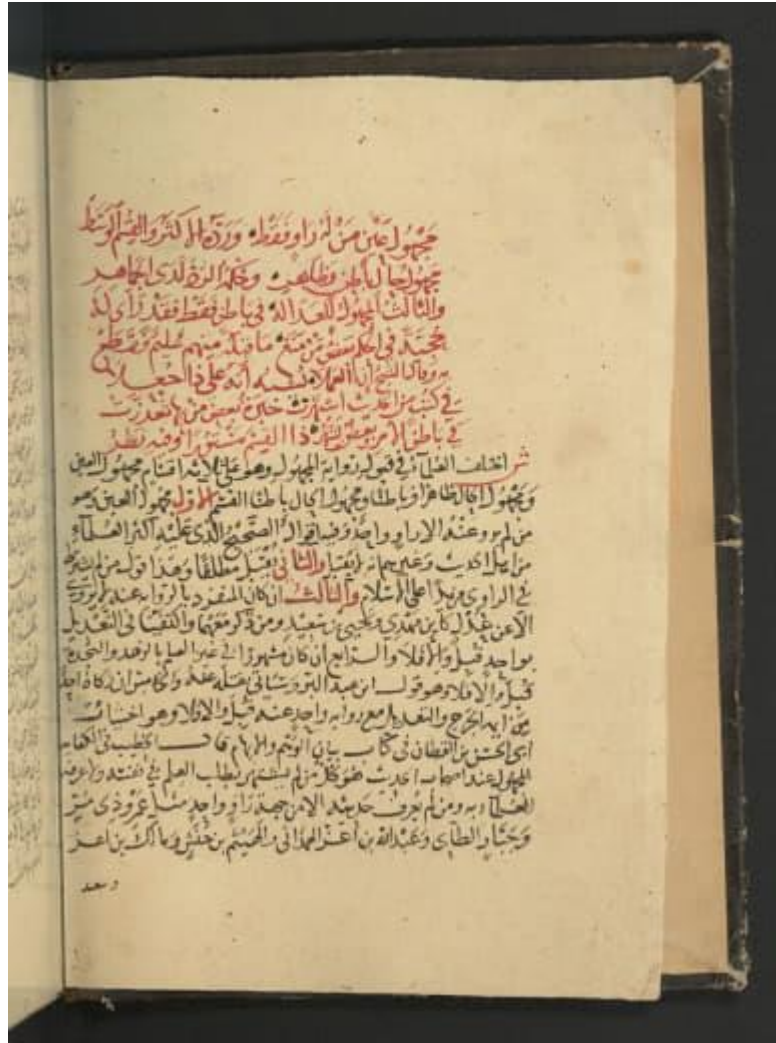 مجهول عين من له راو فقط ورده الاكثر والقسم الوسط
مجهول حال باطن وظاهر وحكمه الرد لدى الجماهر
والثالث المجهول للعدالة في باطن فقط فقد رأى له
حجية في الحكم بعض من منع ما قبله منهم سليم فقطع
به وقال الشيخ ان العملا يشبه انه على ذا جعلا
في كتب من الحديث اشتهرت خبرة بعض من بها تعذرت
في باطن الامر وبعض يشهر ذا القسم مستورا وفيه نظر
ش اختلف العلماء في قبول رواية المجهول وهو على ثلاثة اقسام مجهول العين
ومجهول الحال ظاهرا وباطنا ومجهول الحال باطنا القسم الاول مجهول العين وهو
من لم يرو عنه الا راو واحد وفيه اقوال الصحيح الذي عليه اكثر العلماء
من اهل الحديث وغيرهم انه لا يقبل والثاني يقبل مطلقا وهذا قول من لم يشترط
في الراوي مزيدا على الاسلام والثالث ان كان المنفرد بالرواية عنه لا يروي
الا عن عدل كابن مهدي ويحيى بن سعيد ومن ذكر معهما واكتفينا في التعديل
بواحد قبل والا فلا والرابع ان كان مشهورا في غير العلم بالزهد والنجدة
قبل والا فلا وهو قول ابن عبد البر وسياتي نقله عنه والخامس ان زكاه احد
من ايمة الجرح والتعديل مع رواية واحد عنه قبل والا فلا وهو اختيار
ابي الحسن بن القطان في كتاب بيان الوهم والايهام قال الخطيب في الكفاية
المجهول عند اصحاب الحديث هو كل من لم يشتهر بطلب العلم في نفسه ولا عرفه
العلماء به ومن لم يعرف حديثه الا من جهة راو واحد مثل عمرو ذي مر
وجبار الطاي وعبد الله بن اعز الهمداني والهيثم بن حنش ومالك بن اعز
وسعد